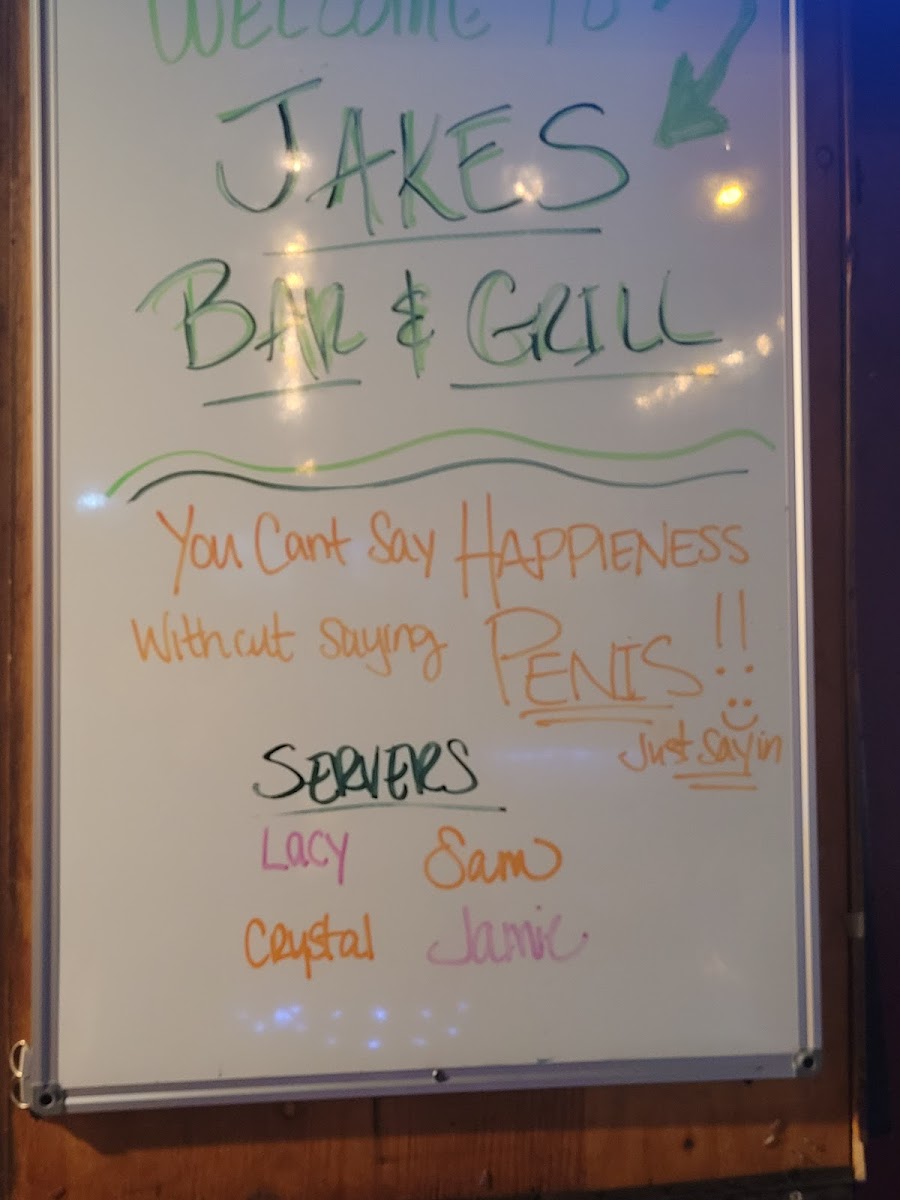 WELCOME TO
JAKES
BAR & GRILL
You Cant Say HAPPIENESS
Without saying PENIS!!
Just sayin
SERVERS
Lacy Sam
Crystal Jamie